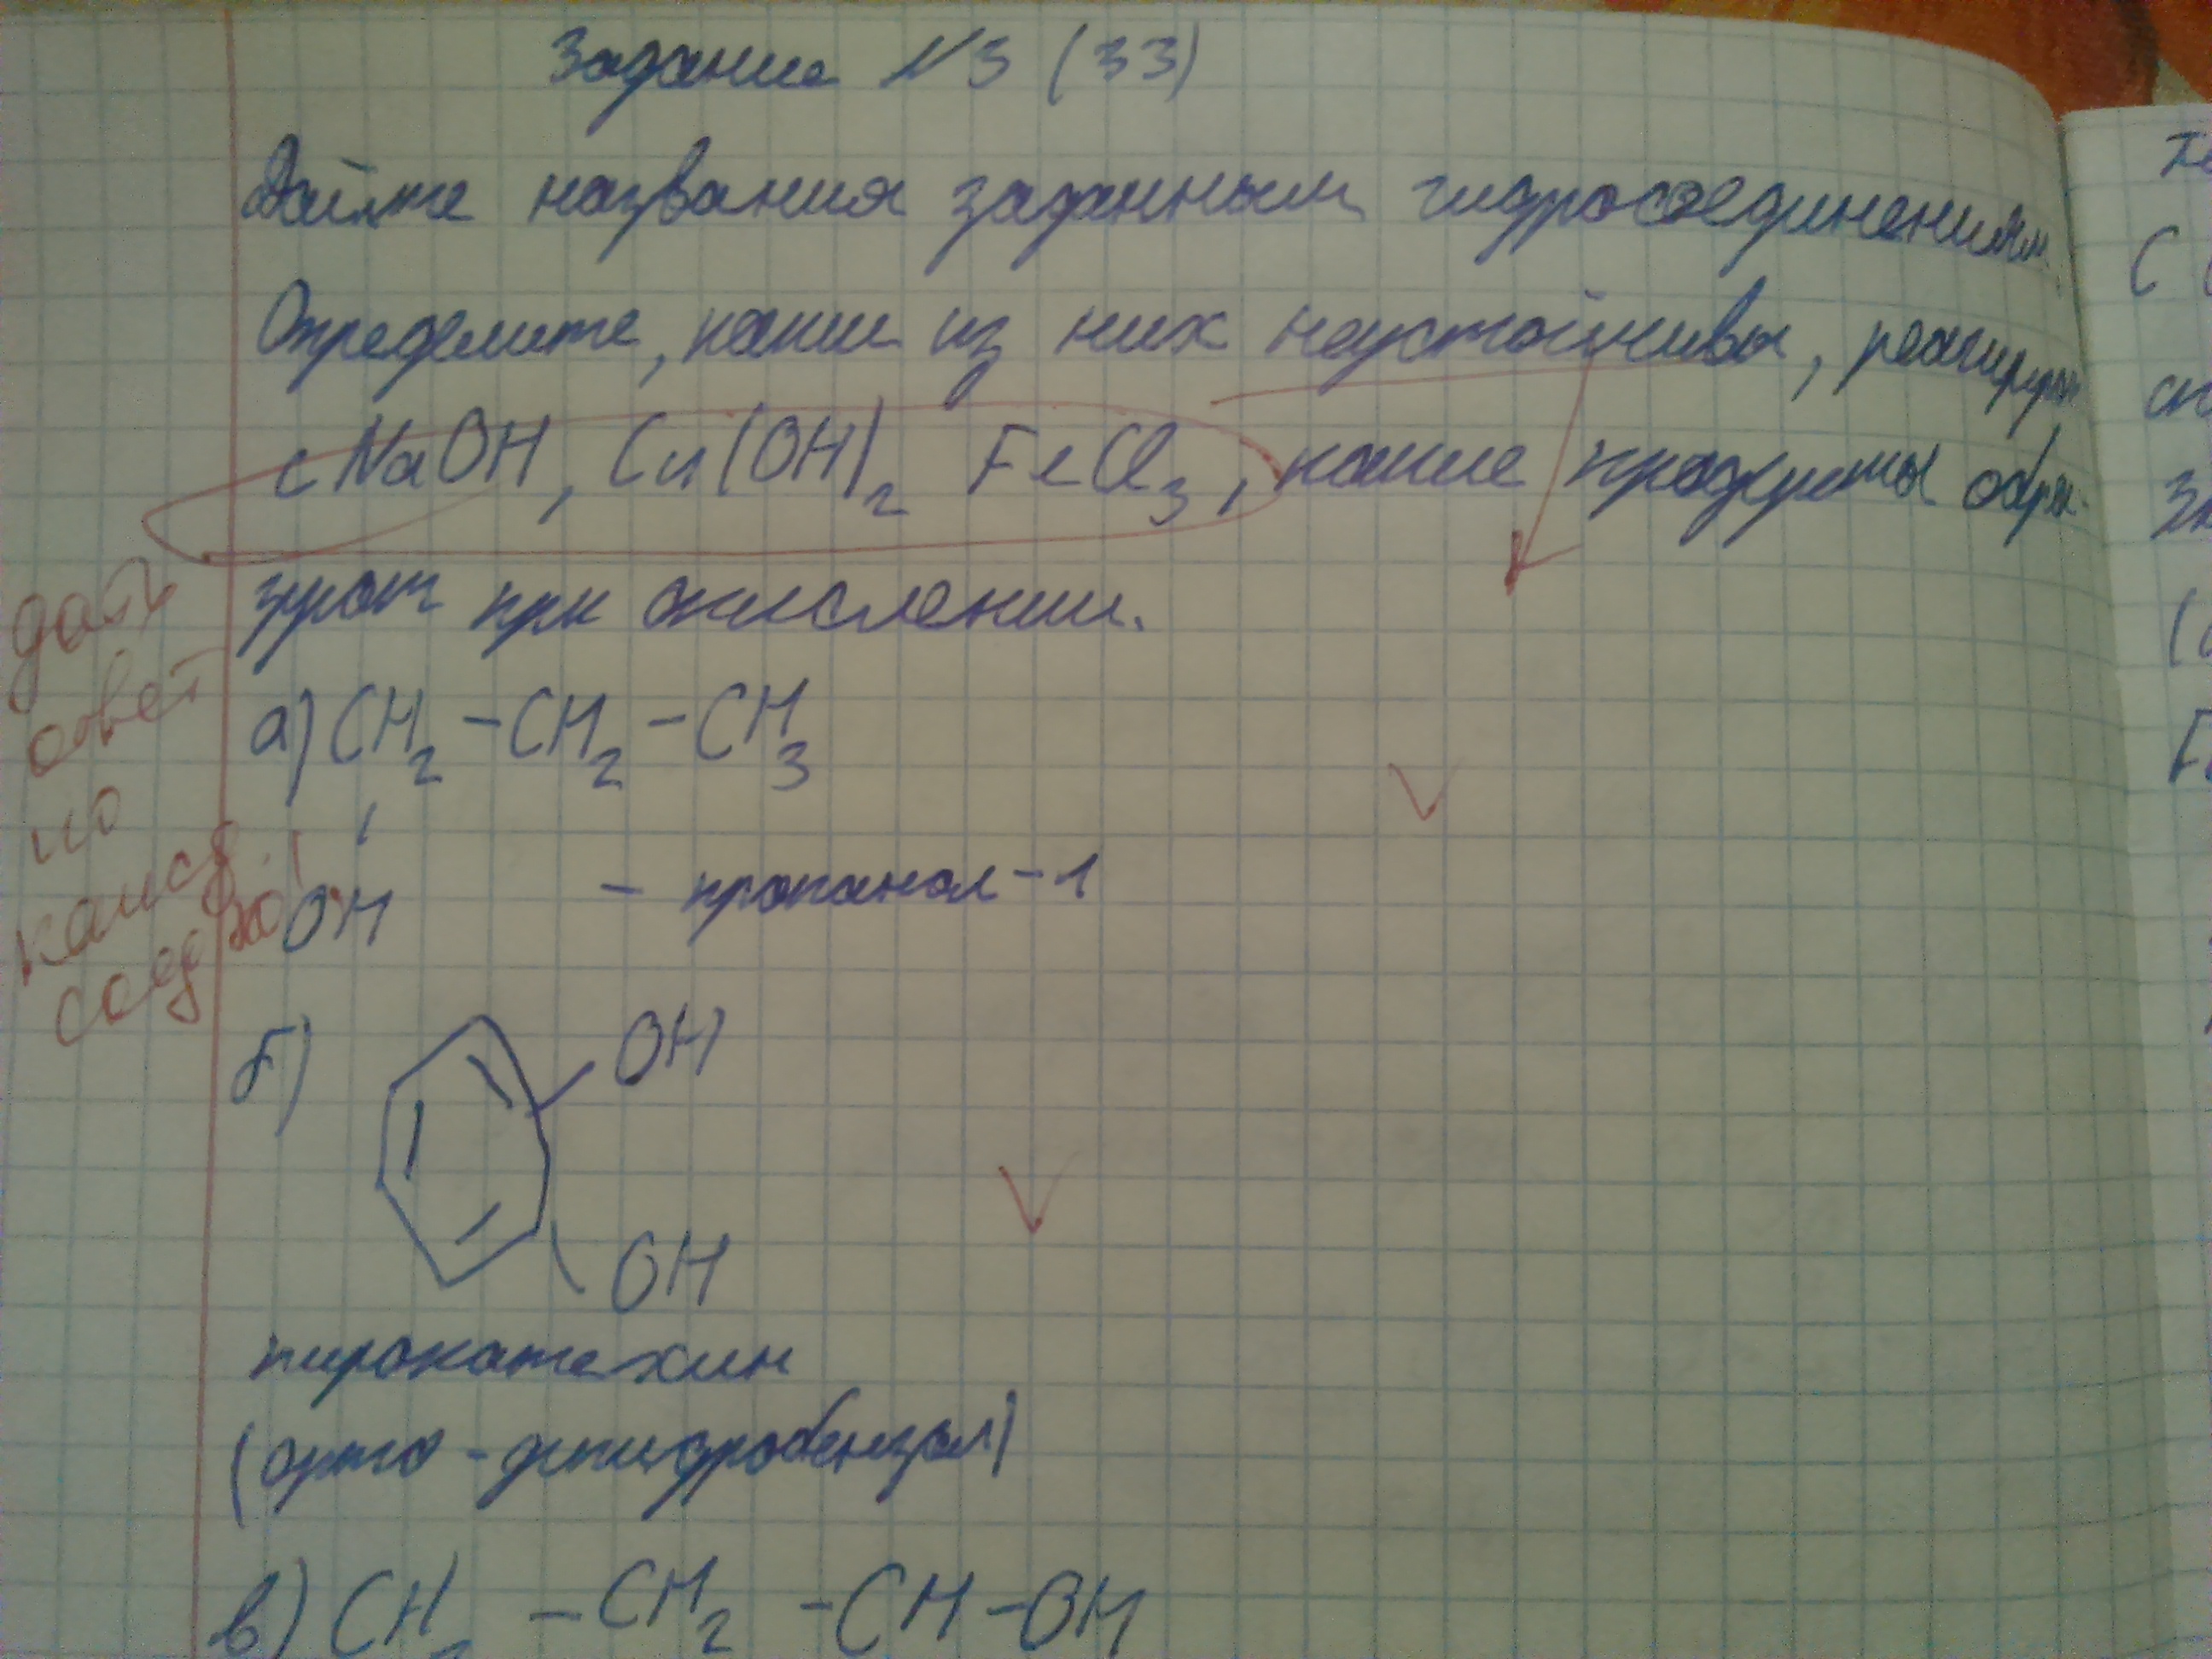 Задание №3 (33)
Дайте названия заданным гидросоединениям.
Определите, какие из них неустойчивы, реагируют
с NaOH, Cu(OH)₂ FeCl₃, какие продукты обра-
зуют при окислении.
дать
ответ
по
кажд.
соед
а) CH₂ – CH₂ – CH₃
OH – пропанол-1
б)
OH
OH
пирокатехин
(орто-дигидробензол)
в) CH – CH₂ – CH – OH